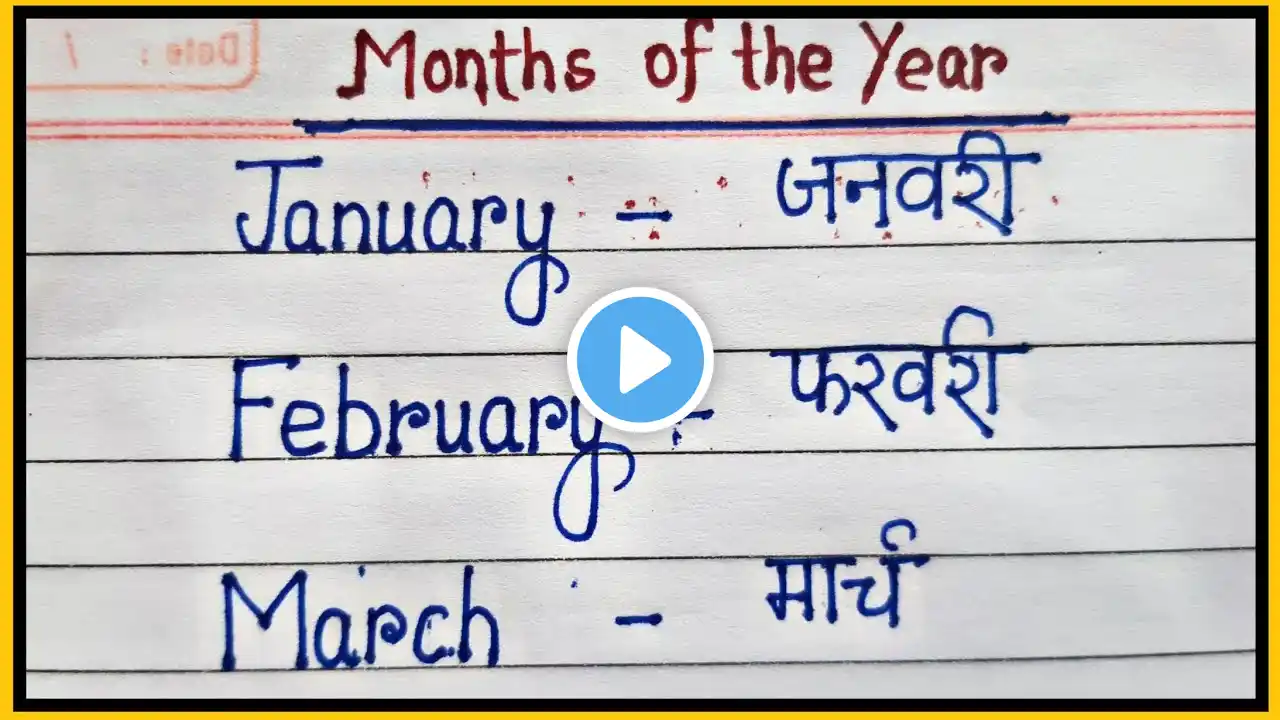 Date : /
Months of the Year
January - जनवरी
February - फरवरी
March - मार्च